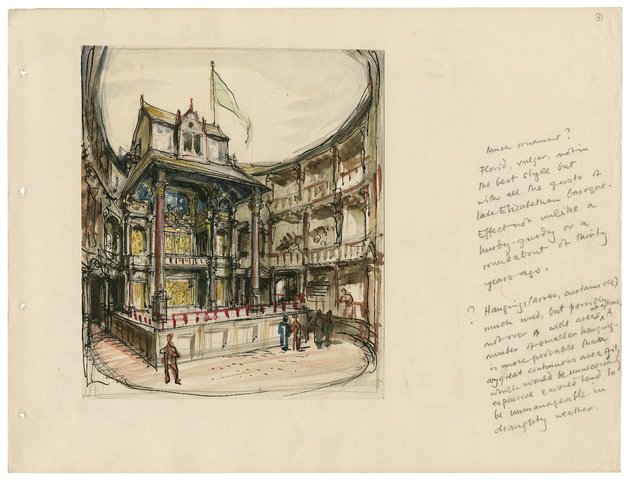 31
Much ornament?
Florid, vulgar, not in
the best style but
with all the gusto of
late Elizabethan baroque.
Effect not unlike a
hurdy-gurdy or a
roundabout of thirty
years ago.
? Hangings (arras, curtains etc)
much used, but possibly
not over a wide area at a time. A
number of smaller hangings
is more probable than
any great continuous area of it,
which would be unnecessarily
expensive & would tend to
be unmanageable in
draughty weather.